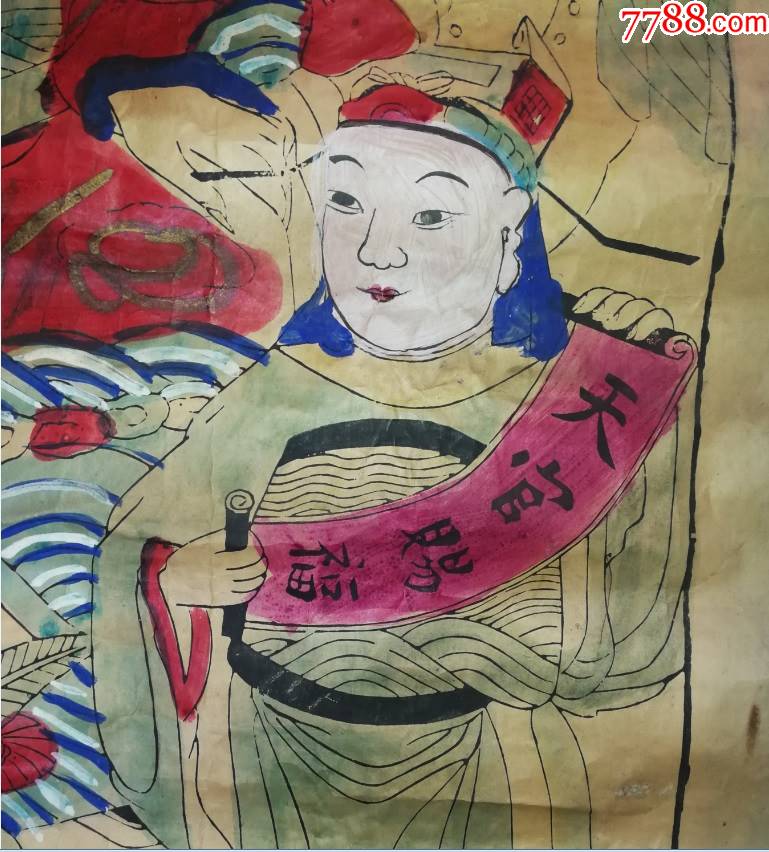 7788.com
天官賜福